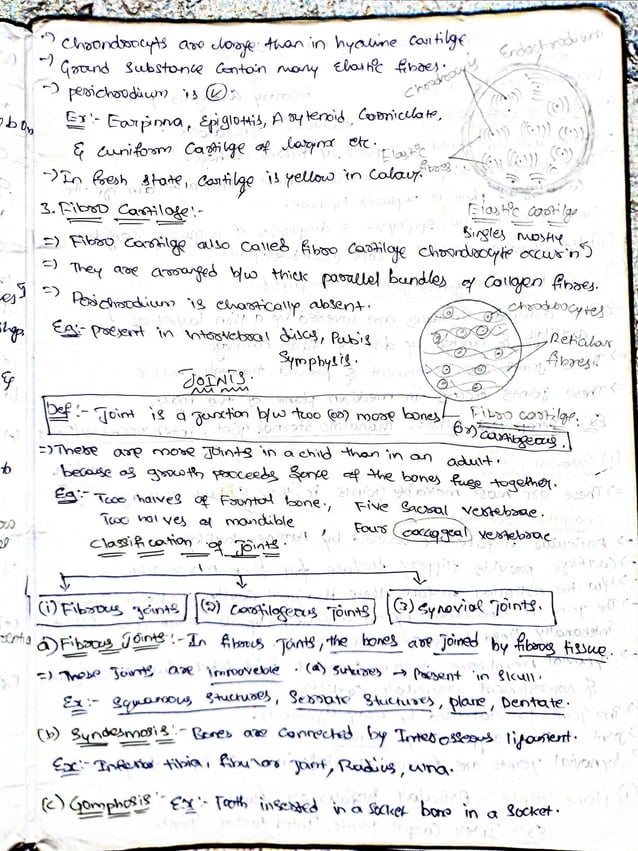 -) Chrondrocyts are large than in hyaline cartilge
-) Ground Substance Contain many Elastic fibres.
-) perichrodium is
Ex:- Earpinna, Epiglottis, Arytenoid, Corniculate,
& Cuniform Cartilge of larynx etc.
-) In fresh state, Cartilge is yellow in Colour.
Endochrodium
Chrodrocyts
Elastic
fibres
Elastic cartilge
3. Fibro Cartilage:-
Singles mostly
=) Fibro Cartilge also Called fibro Cartilage chrondrocytic occur in
=) They are arranged b/w thick parallel bundles of Collagen fibres.
=) Perichrodium is absent.
Eg:- present in Intervetebral discs, Pubis
Symphysis.
chrodrocytes
Reticular
fibres.
Fibro cartilge.
JOINTS
Def:- Joint is a Junction b/w two (or) more bones
(or) Cartilgeous.
=) There are more Joints in a child than in an adult.
because as growth proceeds Some of the bones fuse together.
Eg:- Two halves of Frontal bone, Five Sacral vertebrae.
Two halves of mandible, Four coccygeal vertebrae
Classification of Joints.
(1) Fibrous joints (2) Cartilogerous Joints (3) Synovial Joints.
a) Fibrous Joints:- In fibrous Joints, the bones are joined by fibrous tissue.
=) These Joints are Immoveble. (a) Sutures → Present in Skull.
Ex:- Squamous Stuctures, Serrate Stuctures, plane, Dentate.
(b) Syndesmosis:- Bones are Connected by Interosseous ligament.
Ex:- Inferior tibia, fibular Joint, Radius, ulna.
(c) Gomphosis:- Ex:- Tooth inserted in a Socket bone in a Socket.